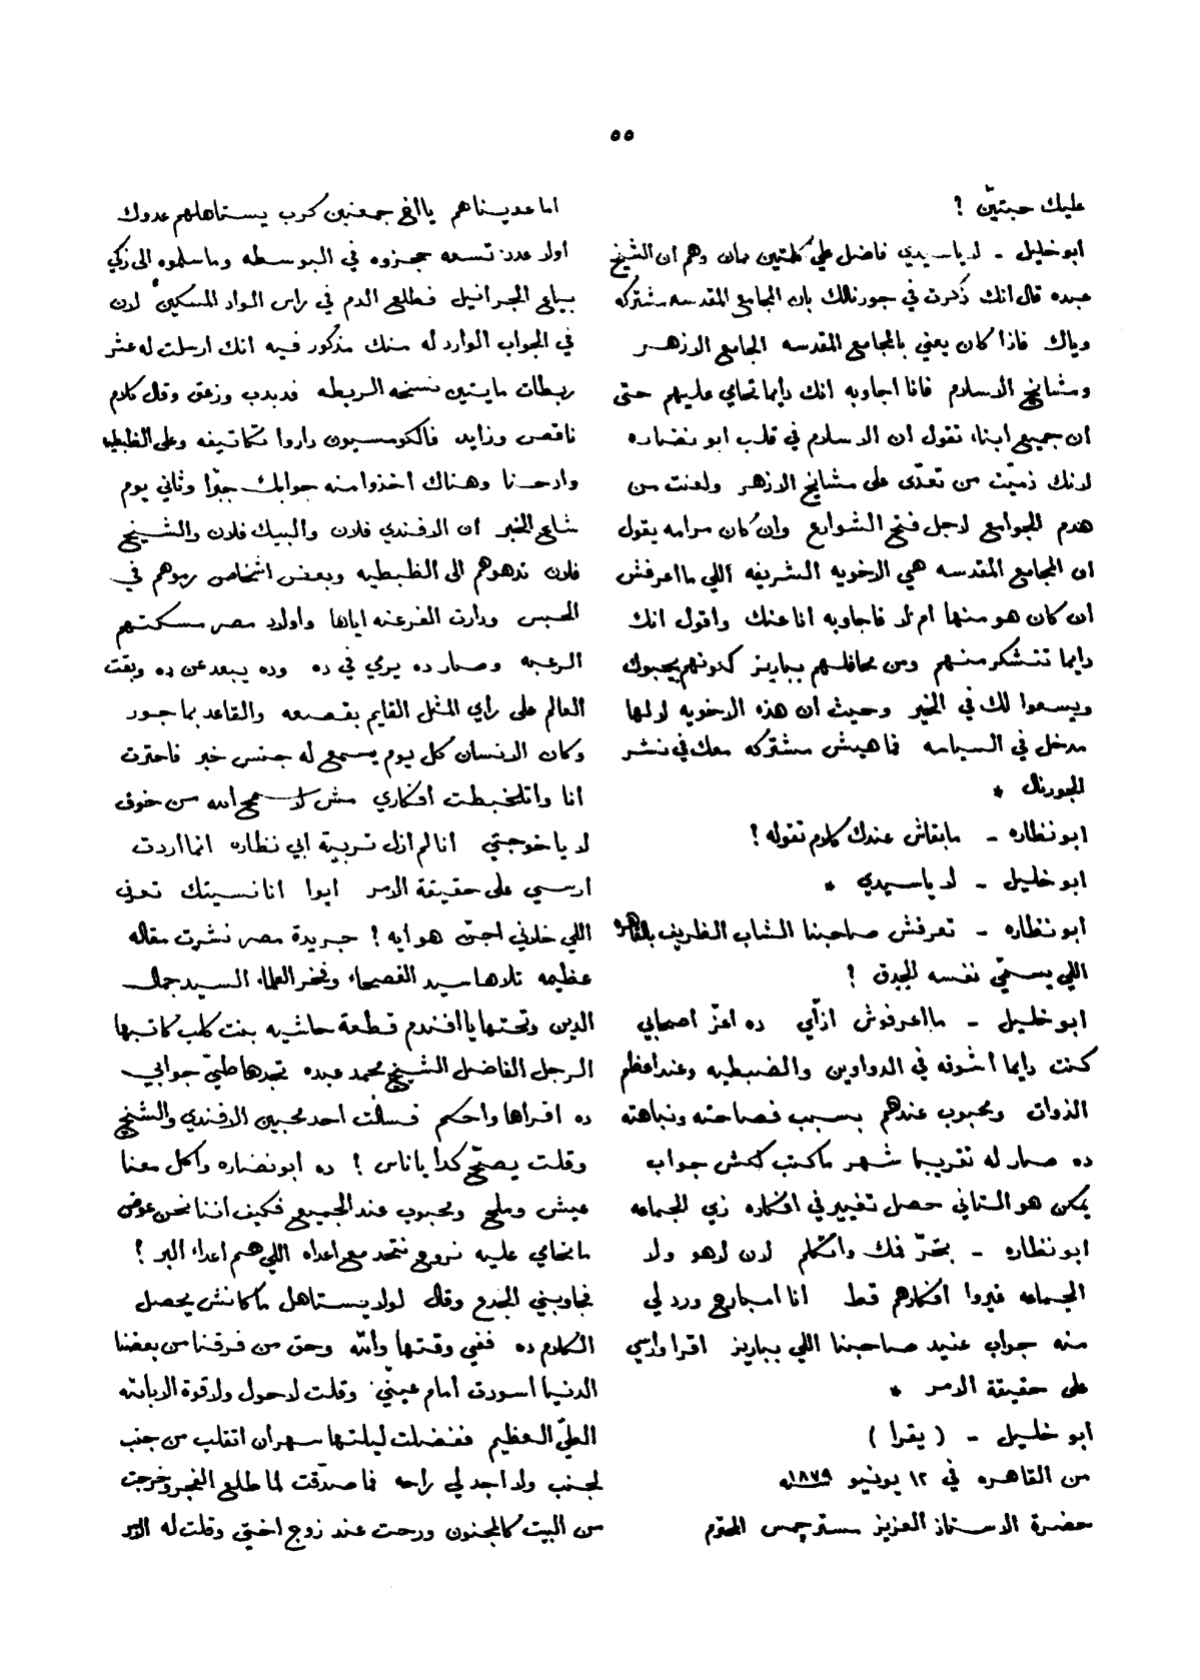 ٥٥
عليك حبتين ?
ابو خليل - لا ياسيدي فاضل علي كلمتين كمان وهم ان الشيخ
عبده قال انك ذكرت في جورنالك بان المجامع المقدسه مشتركه
وياك فاذا كان يعني بالمجامع المقدسه الجامع الازهر
ومشايخ الاسلام فانا اجاوبه انك دايما تحامي عليهم حتى
ان جميع ابناء تقول ان الاسلام في قلب ابو نضاره
لانك ذميّت من تعدّى على مشايخ الازهر ولعنت من
هدم الجوامع لاجل فتح الشوارع وان كان مرامه يقول
ان المجامع المقدسه هي الاخويه الشريفه اللي ما اعرفش
ان كان هو منها ام لا فاجاوبه انا عنك واقول انك
دايما تتشكر منهم ومن محافلهم بباريز كونهم يحبوك
ويسعوا لك في الخير وحيث ان هذه الاخويه لا لها
مدخل في السياسه فما هيش مشتركه معك في نشر
الجورنال *
ابو نظاره - مابقاش عندك كلام تقوله ?
ابو خليل - لا ياسيدي *
ابو نظاره - تعرفش صاحبنا الشاب الظريف بالقاهره
اللي يسمّي نفسه الجدق ?
ابو خليل - ما اعرفوش ازّاي ده أعزّ اصحابي
كنت دايما اشوفه في الدواوين والضبطيه وعند اعظم
الذوات ومحبوب عندهم بسبب فصاحته ونباهته
ده صار له تقريبا شهر ما كتب لكش جواب
يمكن هو التاني حصل تغيير في افكاره زي الجماعه
ابو نظاره - بخّر فمك واتكلم لان لا هو ولا
الجماعه غيروا افكارهم قط انا امبارح ورد لي
منه جواب عنيد صاحبنا اللي بباريز اقرا وارسي
على حقيقة الامر *
ابو خليل - ( يقرا )
من القاهره في ١٢ يونيو سنة ١٨٧٩
حضرة الاستاذ العزيز مستر جمس المحترم
اما عدينا هم يا اخي جمعتين كرب يستاهلهم عدوك
اولا عدد تسعه حجزوه في البوسطه وماسلموه الى زكي
بياع الجرانيل فطلع الدم في راس الواد المسكين لان
في الجواب الوارد له منك مذكور فيه انك ارسلت له عشر
ربطات مايتين نسخه الربطه فدبدب وزعق وقال كلام
ناقص وزايد فالكومسيون داروا تكاتيفه وعلى الظبطيه
وادحنا وهناك اخذوا منه جوابك جبرًا وثاني يوم
شاع الخبر ان الافندي فلان والبيك فلان والشيخ
فلان ندهوهم الى الظبطيه وبعض اشخاص رموهم في
الحبس ودارت الفرعنه اياها واولاد مصر مسكتهم
الرعبه وصار ده يرمي في ده وده يبعد عن ده وبقت
العالم على راي المثل القايم بقصعه والقاعد بما جور
وكان الانسان كل يوم يسمع له جنس خبر فاحترت
انا واتلخبطت افكاري مش لا سمح الله من خوف
لا يا خوجتي انا لم ازل تربية ابي نظاره انما اردت
ارسي على حقيقة الامر ايوا انا نسيتك تعرف
اللي خلاني اجنّ هو ايه ? جريدة مصر نشرت مقاله
عظيمه تلاها سيد الفصحاء وفخر العلماء السيد جمال
الدين وتحتها يا افندم قطعة حاشيه بنت كلب كاتبها
الرجل الفاضل الشيخ محمد عبده تجدها طيّ جوابي
ده اقراها واحكم فسألت احد محبين الافندي والشيخ
وقلت يصحّ كدا يا ناس ? ده ابو نضاره واكل معنا
عيش وملح ومحبوب عند الجميع فكيف اننا نحن عوض
ما نحامي عليه نروح نتحد مع اعداه اللي هم اعداء البر ?
فجاوبني الجدع وقال لولا يستاهل ما كانش يحصل
الكلام ده ففي وقتها والله وحق من فرقنا من بعضنا
الدنيا اسودت امام عينيّ وقلت لا حول ولا قوة الا بالله
العليّ العظيم ففضلت ليلتها سهران اتقلب من جنب
لجنب ولا اجد لي راحه فما صدّقت لما طلع الفجر وخرجت
من البيت كالمجنون ورحت عند زوج اختي وقلت له